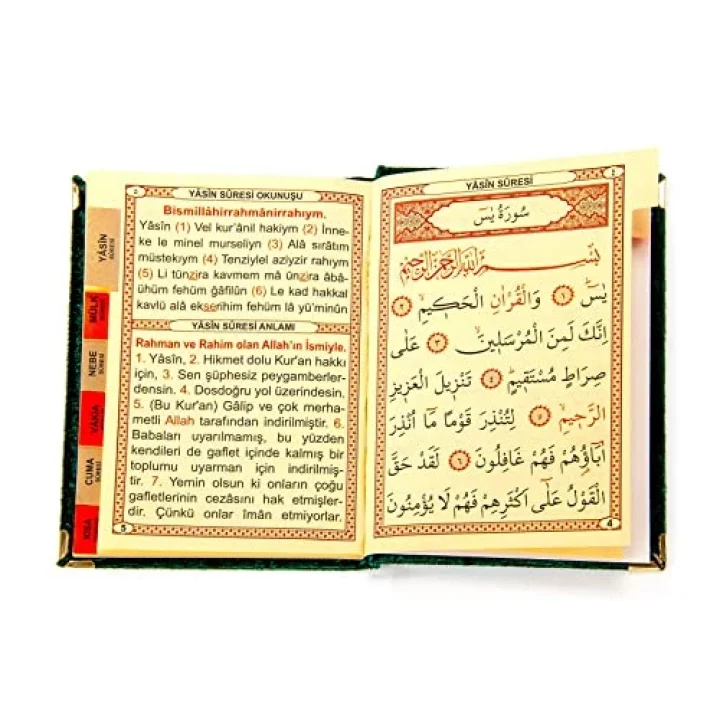 YÂSÎN SÛRESİ OKUNUŞU
Bismillâhirrahmânirrahıym.
Yâsîn (1) Vel kur'ânil hakiym (2) İnne-
ke le minel murseliyn (3) Alâ sırâtım
müstekıym (4) Tenziylel aziyzir rahıym
(5) Li tünzira kavmem mâ ünzira âbâ-
ühüm fehüm ğâfilûn (6) Le kad hakkal
kavlü alâ ekserihim fehüm lâ yü'minûn
YÂSÎN SÛRESİ ANLAMI
Rahman ve Rahim olan Allah'ın İsmiyle.
1. Yâsîn, 2. Hikmet dolu Kur'an hakkı
için, 3. Sen şüphesiz peygamberler-
densin. 4. Dosdoğru yol üzerindesin.
5. (Bu Kur'an) Gâlip ve çok merha-
metli Allah tarafından indirilmiştir. 6.
Babaları uyarılmamış, bu yüzden
kendileri de gaflet içinde kalmış bir
toplumu uyarman için indirilmiş-
tir. 7. Yemin olsun ki onların çoğu
gafletlerinin cezâsını hak etmişler-
dir. Çünkü onlar îmân etmiyorlar.
5
YÂSÎN SÛRESİ
MÜLK
NEBE SÛRESİ
VÂKIA
CUMA SÛRESİ
KISA
YÂSÎN SÛRESİ
سُورَةُ يٰسٓ
بِسْمِ اللّٰهِ الرَّحْمٰنِ الرَّحٖيمِ
يٰسٓ ﴿١﴾ وَالْقُرْاٰنِ الْحَكٖيمِ ﴿٢﴾
اِنَّكَ لَمِنَ الْمُرْسَلٖينَ ﴿٣﴾ عَلٰى
صِرَاطٍ مُسْتَقٖيمٍ ﴿٤﴾ تَنْزٖيلَ الْعَزٖيزِ
الرَّحٖيمِ ﴿٥﴾ لِتُنْذِرَ قَوْمًا مَٓا اُنْذِرَ
اٰبَٓاؤُهُمْ فَهُمْ غَافِلُونَ ﴿٦﴾ لَقَدْ حَقَّ
الْقَوْلُ عَلٰٓى اَكْثَرِهِمْ فَهُمْ لَا يُؤْمِنُونَ
4